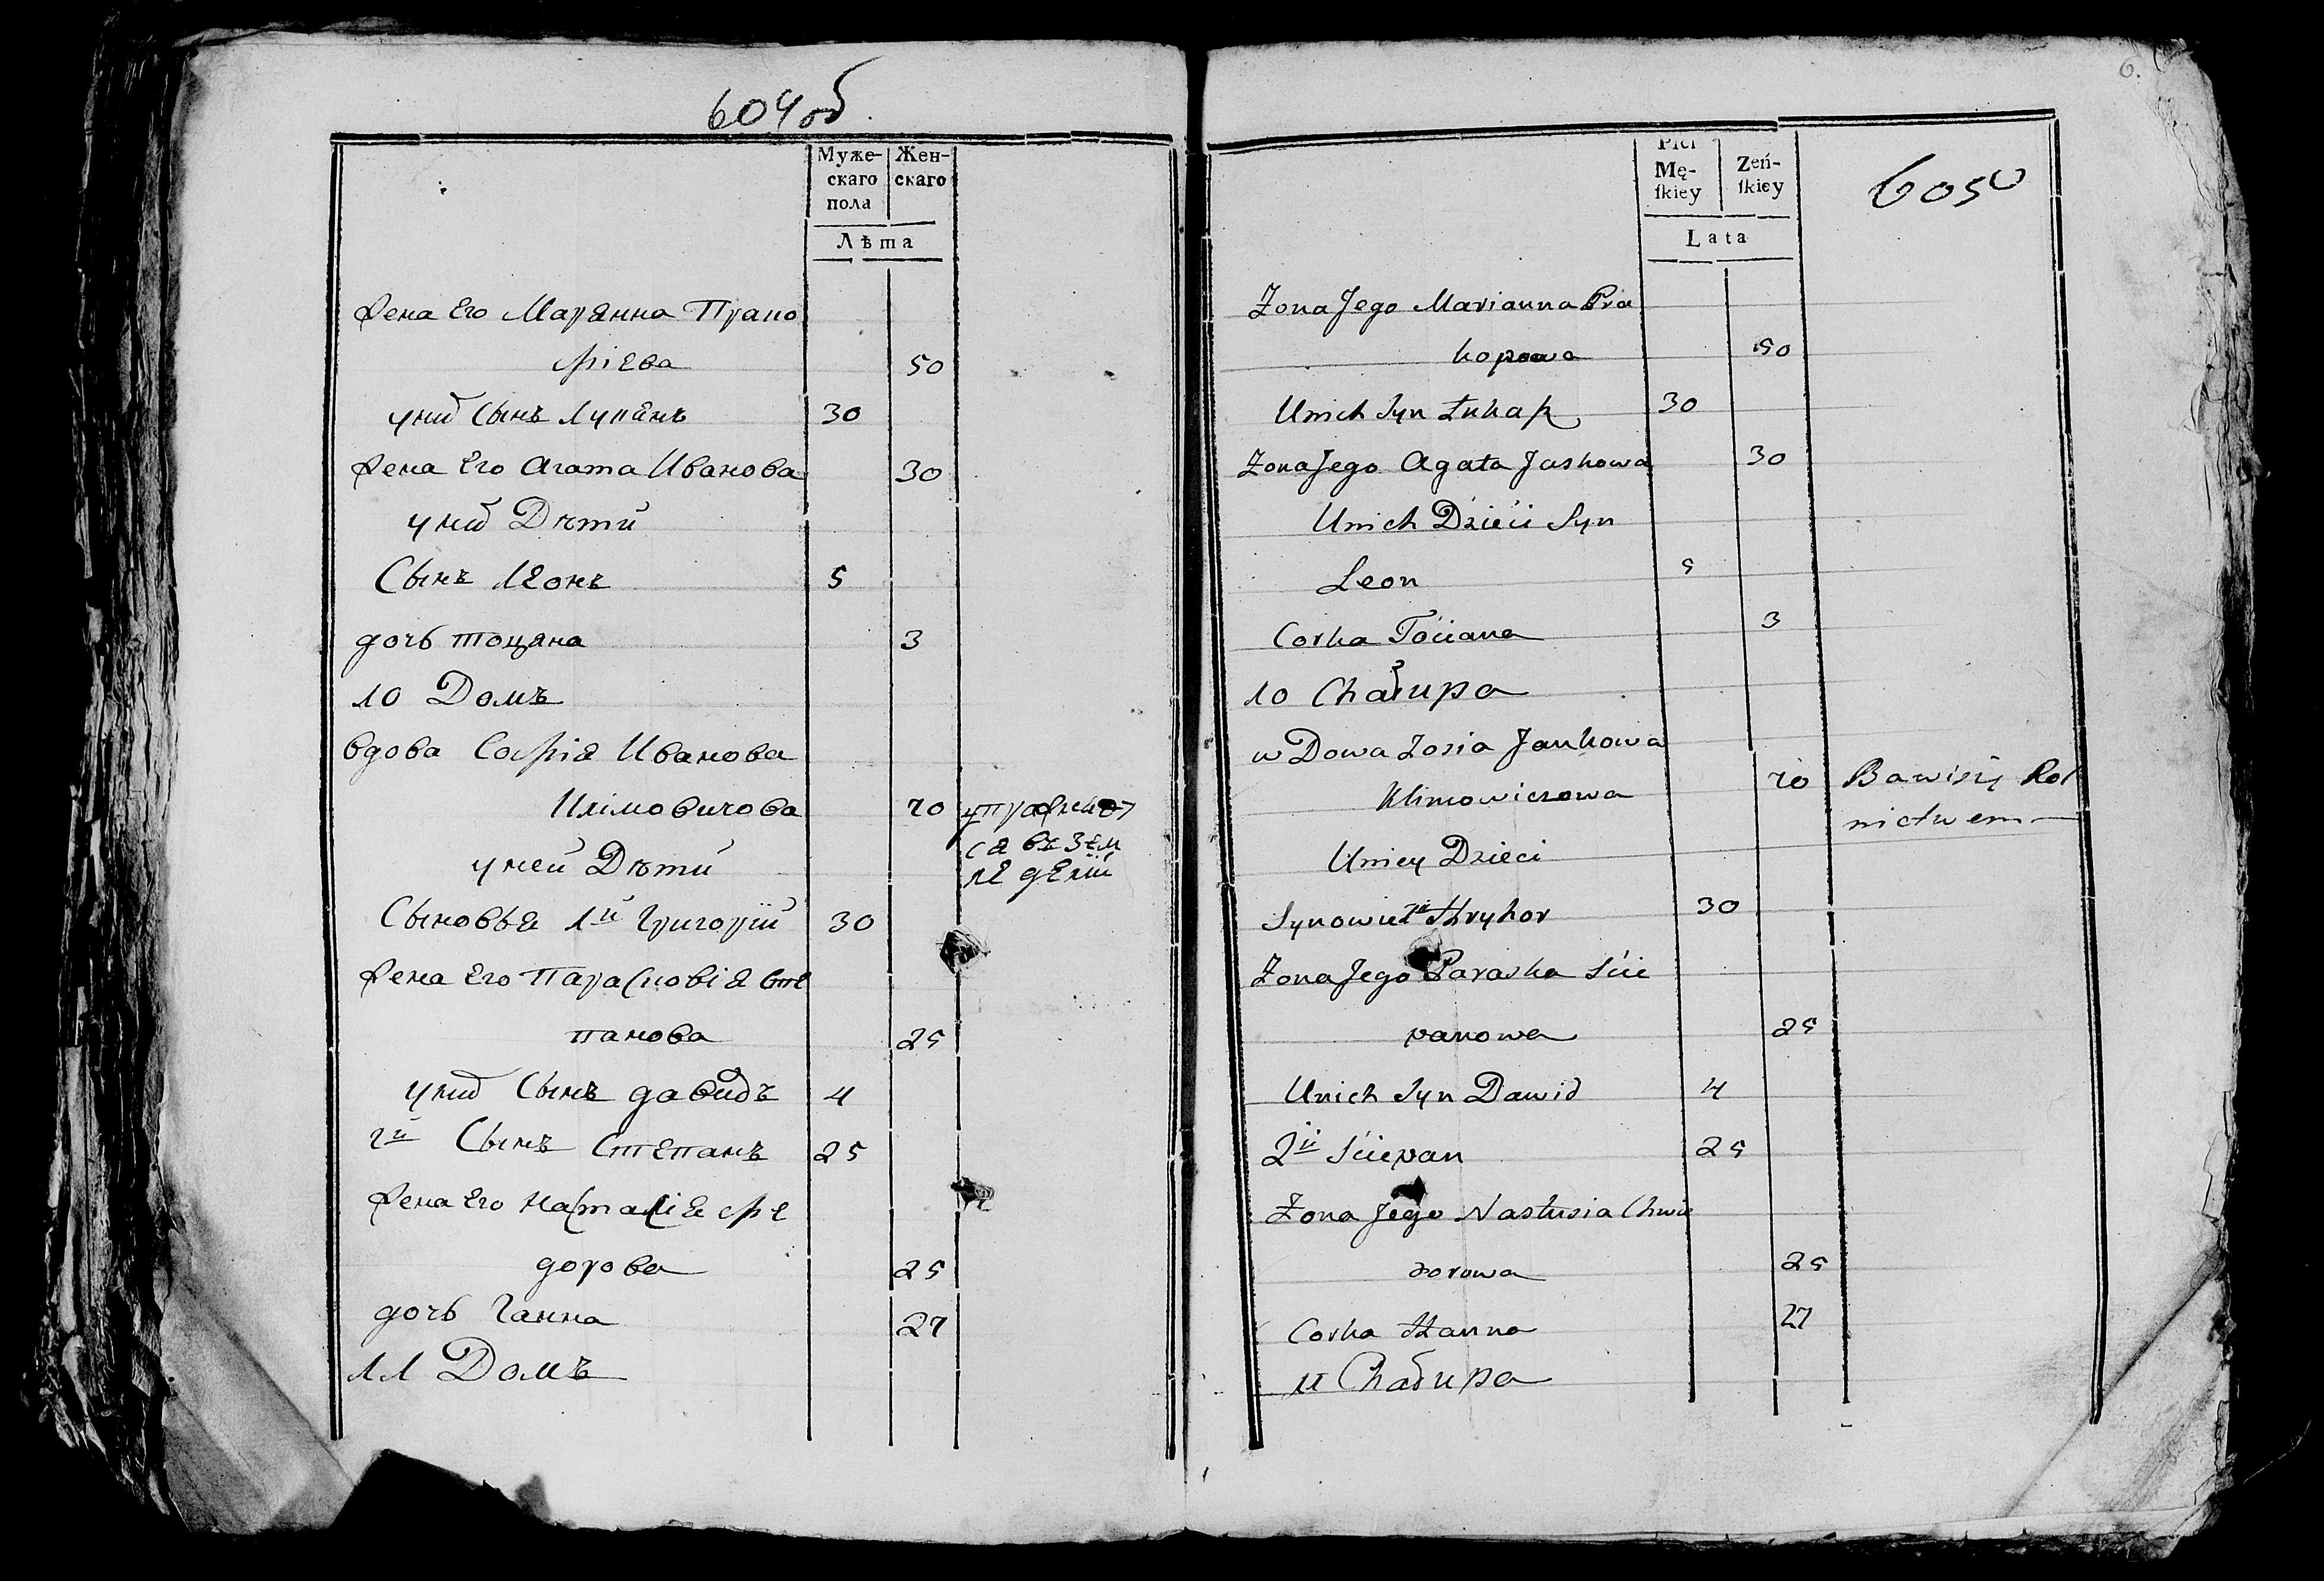 604 об
Муже-
скаго
пола
Жен-
скаго
Лѣта
жена Его Марянна Прако
фіева 50
уних Сынъ Лукянъ 30
жена Его Агата Иванова 30
уних Дѣти
Сынъ Леонъ 5
дочь тоцяна 3
10 Домъ
вдова Софія Иванова
Климовичова 70 упражнает
ся въ Зем
леделіи
уней Дѣти
Сыновья 1й Григорій 30
жена Его Парасковія Сте
панова 25
уних Сынъ давидъ 4
2й Сынъ Степанъ 25
жена Его Настасія фе
дорова 25
дочь Ганна 27
11 Домъ
6.
605
Płci
Mę-
ſkiey
Zeń-
ſkiey
Lata
Zona Jego Marianna Pra
kopowa 50
Unich Syn Łukasz 30
Zona Jego Agata Jaskowa 30
Unich Dzieci Syn
Leon 5
Corka Taciana 3
10 Chałupa
wDowa Zosia Jankowa
Klimowiczowa 70 Bawi się Rol
nictwem
Uniey Dzieci
Synowie 1й Hryhor 30
Zona Jego Paraska Scie
panowa 25
Unich Syn Dawid 4
2й Sciepan 25
Zona Jego Nastusia Chwie
dorowa 25
Corka Hanna 27
11 Chałupa